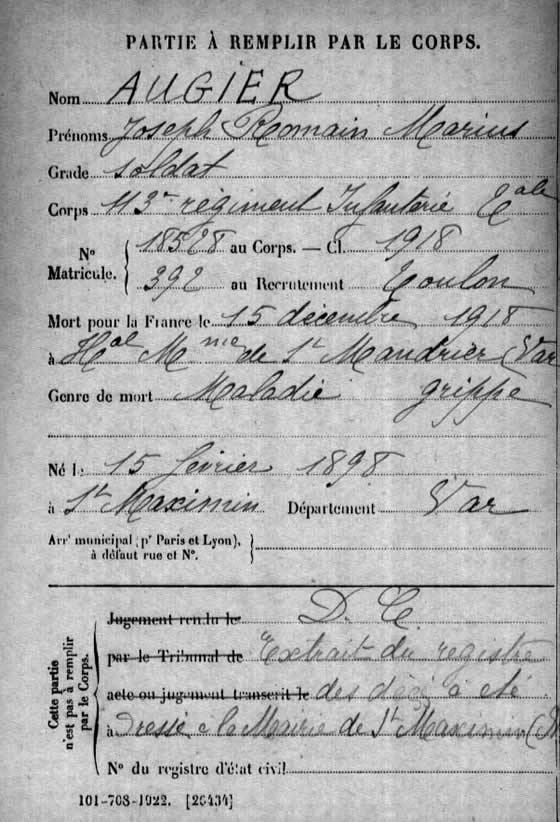 PARTIE À REMPLIR PAR LE CORPS.
Nom AUGIER
Prénoms Joseph Romain Marius
Grade soldat
Corps 113e régiment Infanterie Cale
No Matricule. 18528 au Corps. — Cl. 1918
392 au Recrutement Toulon
Mort pour la France le 15 décembre 1918
à Hal Mme de St Mandrier (Var
Genre de mort Maladie grippe
Né le 15 février 1898
à St Maximin Département Var
Arrt municipal (pr Paris et Lyon),
à défaut rue et No.
Cette partie n'est pas à remplir par le Corps.
Jugement rendu le D. C
par le Tribunal de Extrait du registre
acte ou jugement transcrit le des décès a été
à dressé à la Mairie de St Maximin (V
No du registre d'état civil
101-708-1922. [26434]